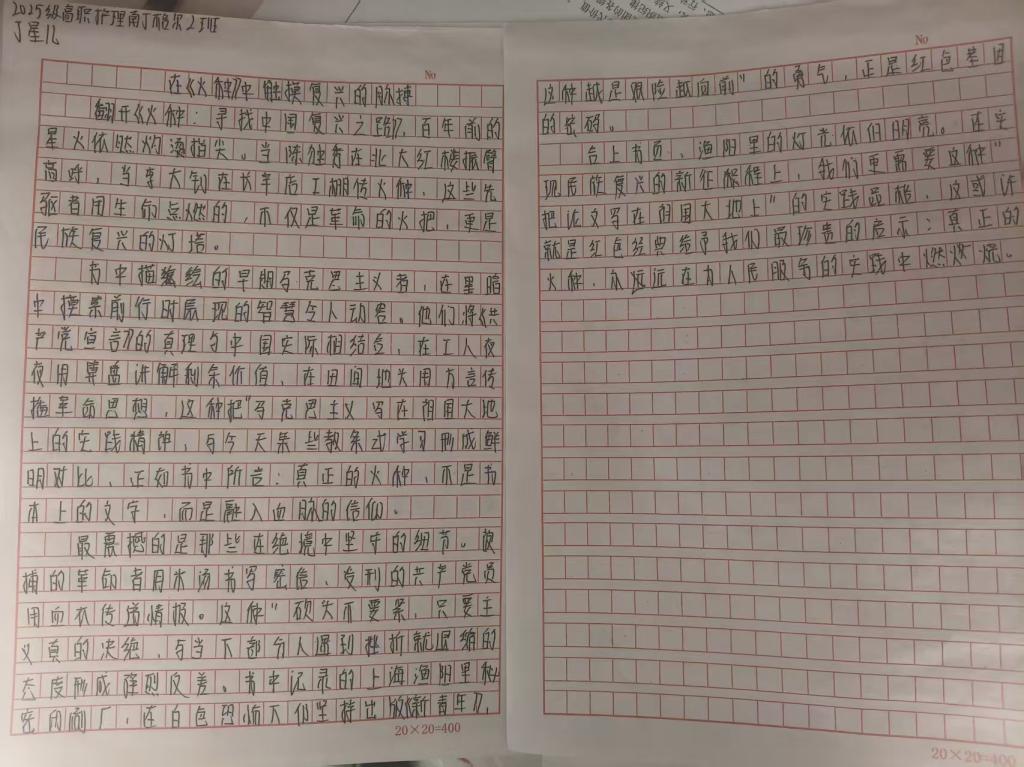 2025级高职护理南丁格尔2班
丁星儿
No
在《火种》中触摸复兴的脉搏
翻开《火种：寻找中国复兴之路》，百年前的
星火依然灼烫指尖。当陈独秀在北大红楼振臂
高呼，当李大钊在长辛店工棚传火种，这些先
驱者用生命点燃的，不仅是革命的火把，更是
民族复兴的灯塔。
书中描绘的早期马克思主义者，在黑暗
中摸索前行时展现的智慧令人动容。他们将《共
产党宣言》的真理与中国实际相结合，在工人夜
校用算盘讲解剩余价值，在田间地头用方言传
播革命思想，这种把"马克思主义写在祖国大地
上的实践精神，与今天某些教条式学习形成鲜
明对比，正如书中所言：真正的火种，不是书
本上的文字，而是融入血脉的信仰。
最震撼的是那些在绝境中坚守的细节。被
捕的革命者用米汤书写密信，受刑的共产党员
用血衣传递情报。这种"砍头不要紧，只要主
义真的决绝，与当下部分人遇到挫折就退缩的
态度形成强烈反差。书中记录的上海渔阳里秘
密印刷厂，在白色恐怖下仍坚持出版《新青年》，
20×20=400
No
这种越是艰险越向前"的勇气，正是红色基因
的密码。
合上书页，渔阳里的灯光依旧明亮。在实
现民族复兴的新征程上，我们更需要这种"
把论文写在祖国大地上"的实践品格，这或许
就是红色经典给予我们最珍贵的启示：真正的
火种，永远在为人民服务的实践中燃烧。
20×20=400